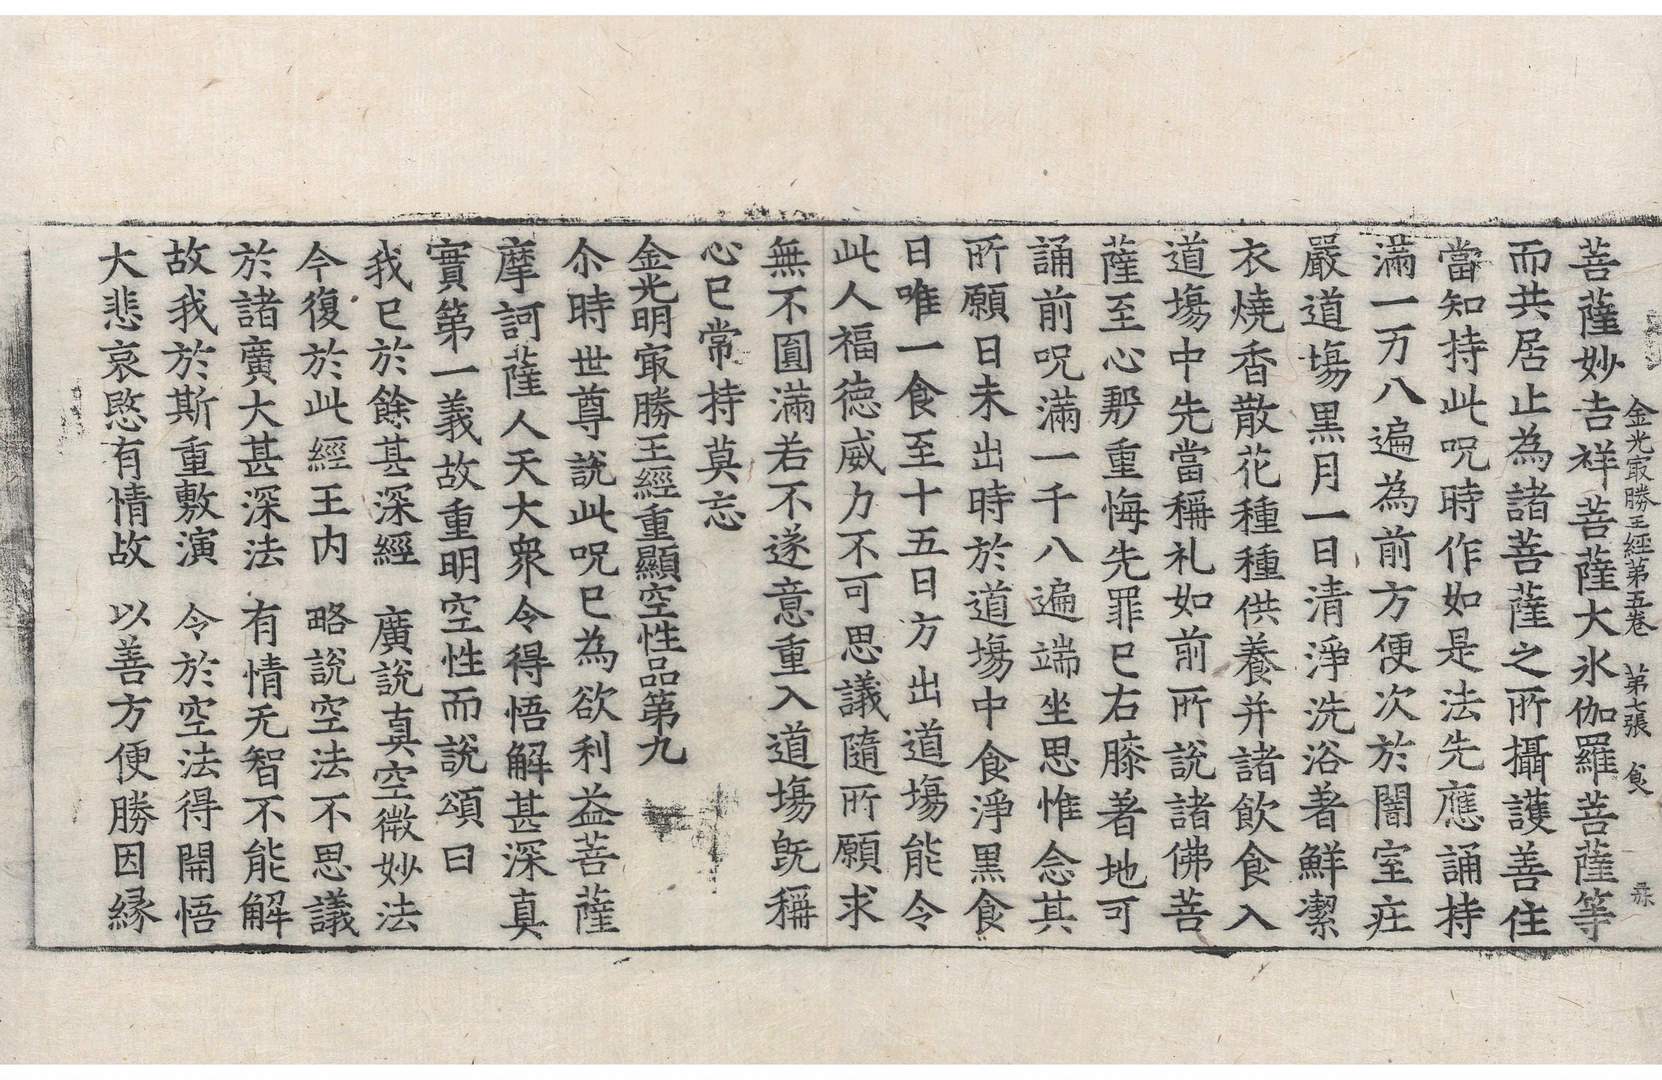 金光㝡勝王經第五卷　第七張　食
菩薩妙吉祥菩薩大氷伽羅菩薩等
而共居止為諸菩薩之所攝護善住
當知持此呪時作如是法先應誦持
滿一万八遍為前方便次於闇室㽵
嚴道場黒月一日清淨洗浴著鮮潔
衣燒香散花種種供養并諸飲食入
道場中先當稱礼如前所說諸佛菩
薩至心慇重悔先罪已右膝著地可
誦前呪滿一千八遍端坐思惟念其
所願日未出時於道場中食淨黒食
日唯一食至十五日方出道場能令
此人福德威力不可思議隨所願求
無不圓滿若不遂意重入道場旣稱
心已常持莫忘
金光明㝡勝王經重顯空性品第九
尒時世尊說此呪已為欲利益菩薩
摩訶薩人天大衆令得悟解甚深真
實第一義故重明空性而說頌曰
我已於餘甚深經　廣說真空微妙法
今復於此經王内　略說空法不思議
於諸廣大甚深法　有情无智不能解
故我於斯重敷演　令於空法得開悟
大悲哀愍有情故　以善方便勝因縁